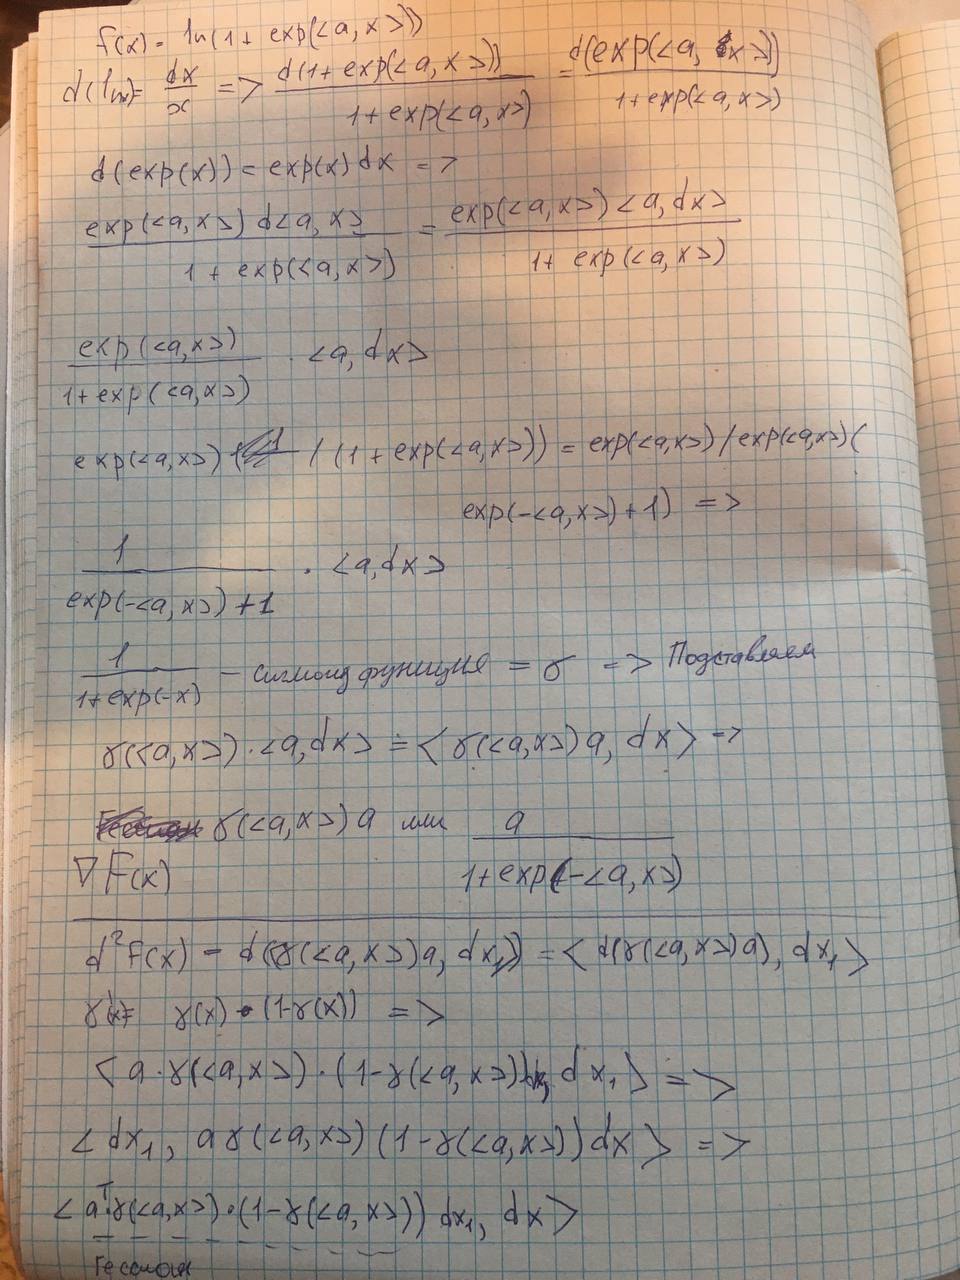 F(x) = ln(1 + exp(<a, x>))
d(ln x) = dx/x => d(1 + exp(<a, x>)) / 1 + exp(<a, x>) = d(exp(<a, x>)) / 1 + exp(<a, x>)
d(exp(x)) = exp(x) dx =>
exp(<a, x>) d<a, x> / 1 + exp(<a, x>) = exp(<a, x>) <a, dx> / 1 + exp(<a, x>)
exp(<a, x>) / 1 + exp(<a, x>) · <a, dx>
exp(<a, x>) / (1 + exp(<a, x>)) = exp(<a, x>) / exp(<a, x>) (
exp(-<a, x>) + 1) =>
1 / exp(-<a, x>) + 1 · <a, dx>
1 / 1 + exp(-x) - сигмоид функция = σ => Подставляем
σ(<a, x>) · <a, dx> = <σ(<a, x>) a, dx> =>
σ(<a, x>) a или a / 1 + exp(-<a, x>)
∇F(x)
d²F(x) = d(σ(<a, x>) a, dx₁)) = <d(σ(<a, x>) a), dx₁>
σ'(x) = σ(x) · (1 - σ(x)) =>
<a · σ(<a, x>) · (1 - σ(<a, x>)) dx, dx₁> =>
<dx₁, a σ(<a, x>) (1 - σ(<a, x>)) dx> =>
<aᵀ · σ(<a, x>) · (1 - σ(<a, x>)) dx₁, dx>
Гессиан